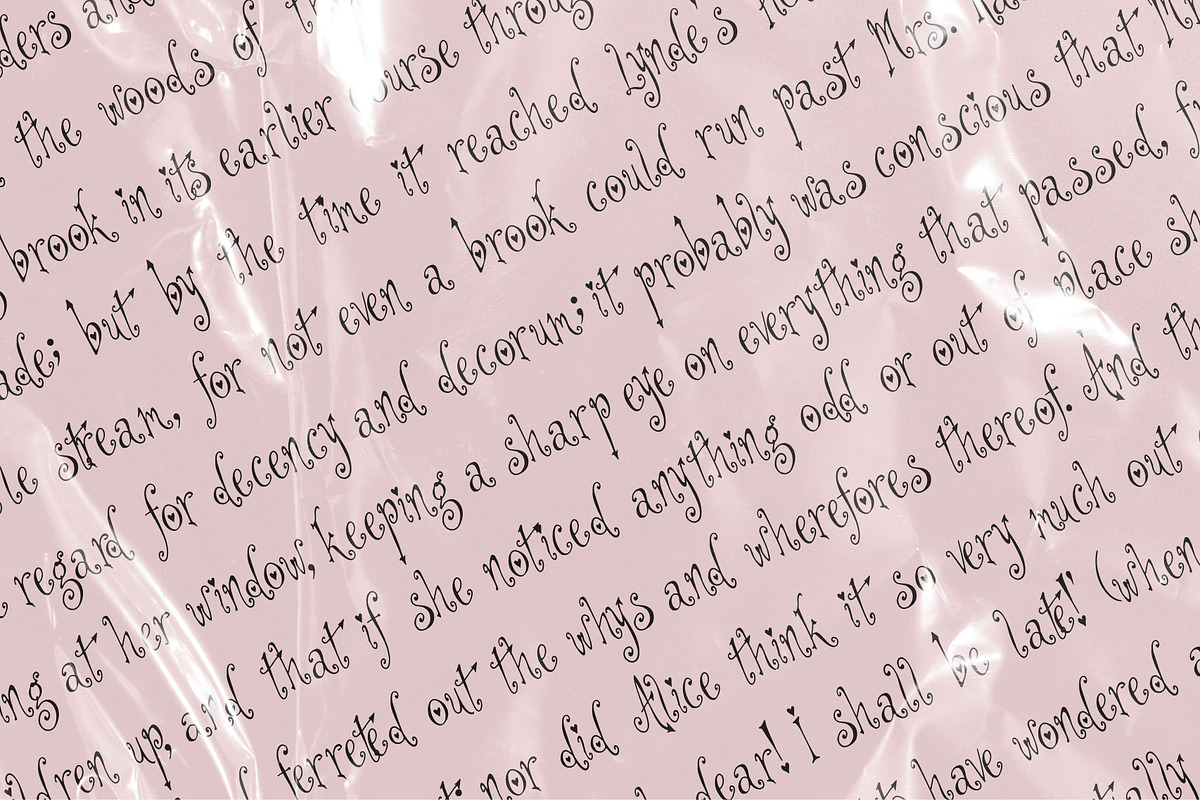 ders and
the woods of th
brook in its earlier course throug
ade; but by the time it reached Lynde's Ho
le stream, for not even a brook could run past Mrs. Ra
regard for decency and decorum; it probably was conscious that M
ing at her window, keeping a sharp eye on everything that passed, f
ldren up, and that if she noticed anything odd or out of place sh
ferreted out the whys and wherefores thereof. And th
nor did Alice think it so very much out
dear! I shall be late!' (when
have wondered a
ally